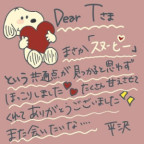 Dear Tさま
まさか「スヌーピー」
という共通点が見つかると思わず
ほっこりしました たくさん甘えさせて
くれてありがとうございました
また会いたいな……
平沢